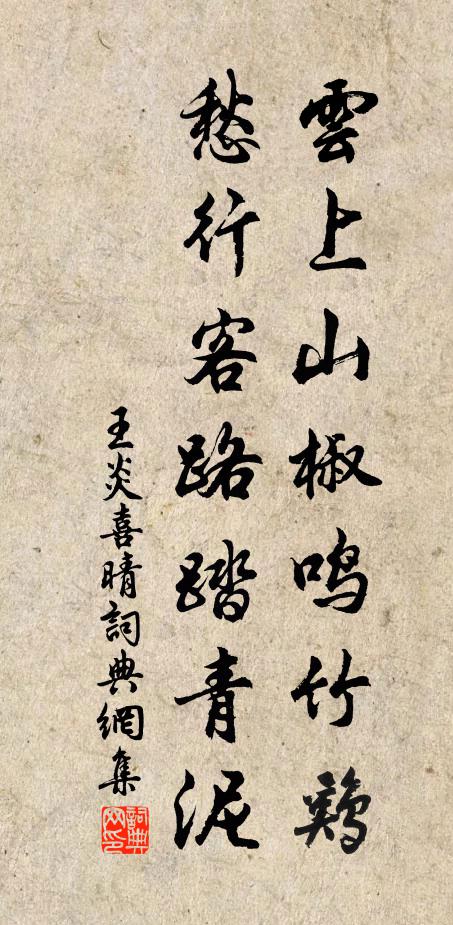 雲上山椒鳴竹鷄
愁行客路踏青泥
王炎喜晴詞典網集
詞典網印